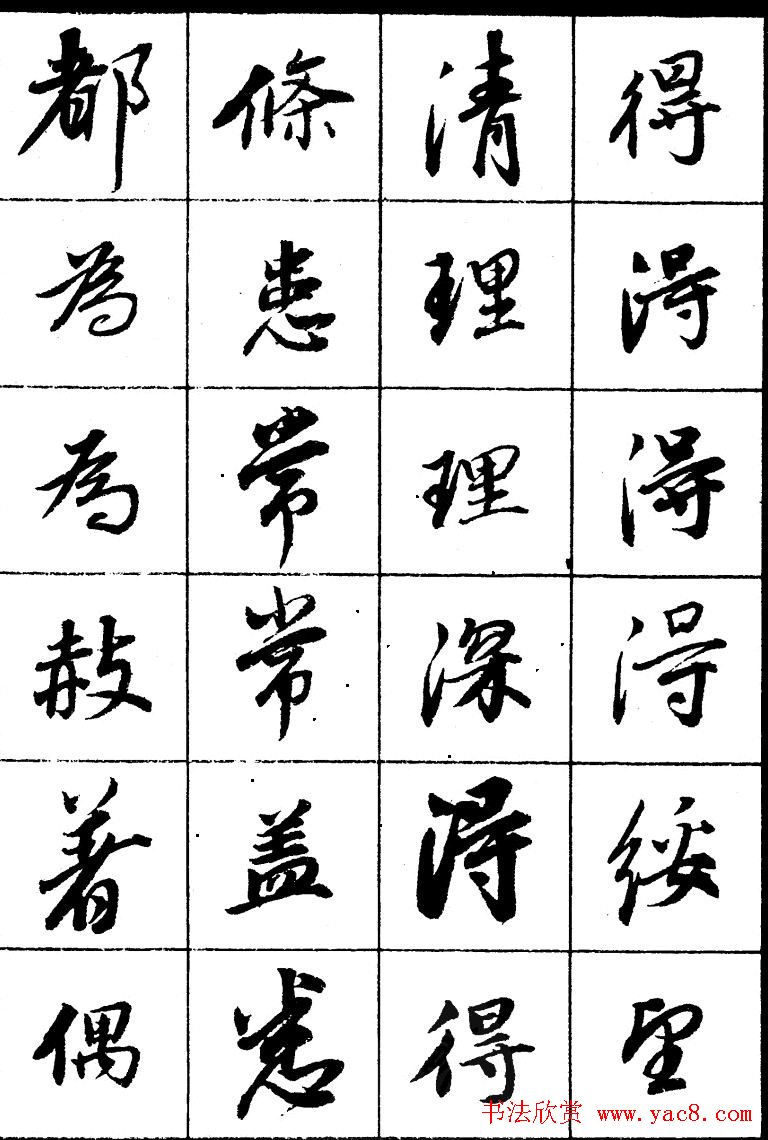 得得得得綏望
清理理深得得
條患常常盖悉
都為為赦著偶
书法欣赏 www.yac8.com